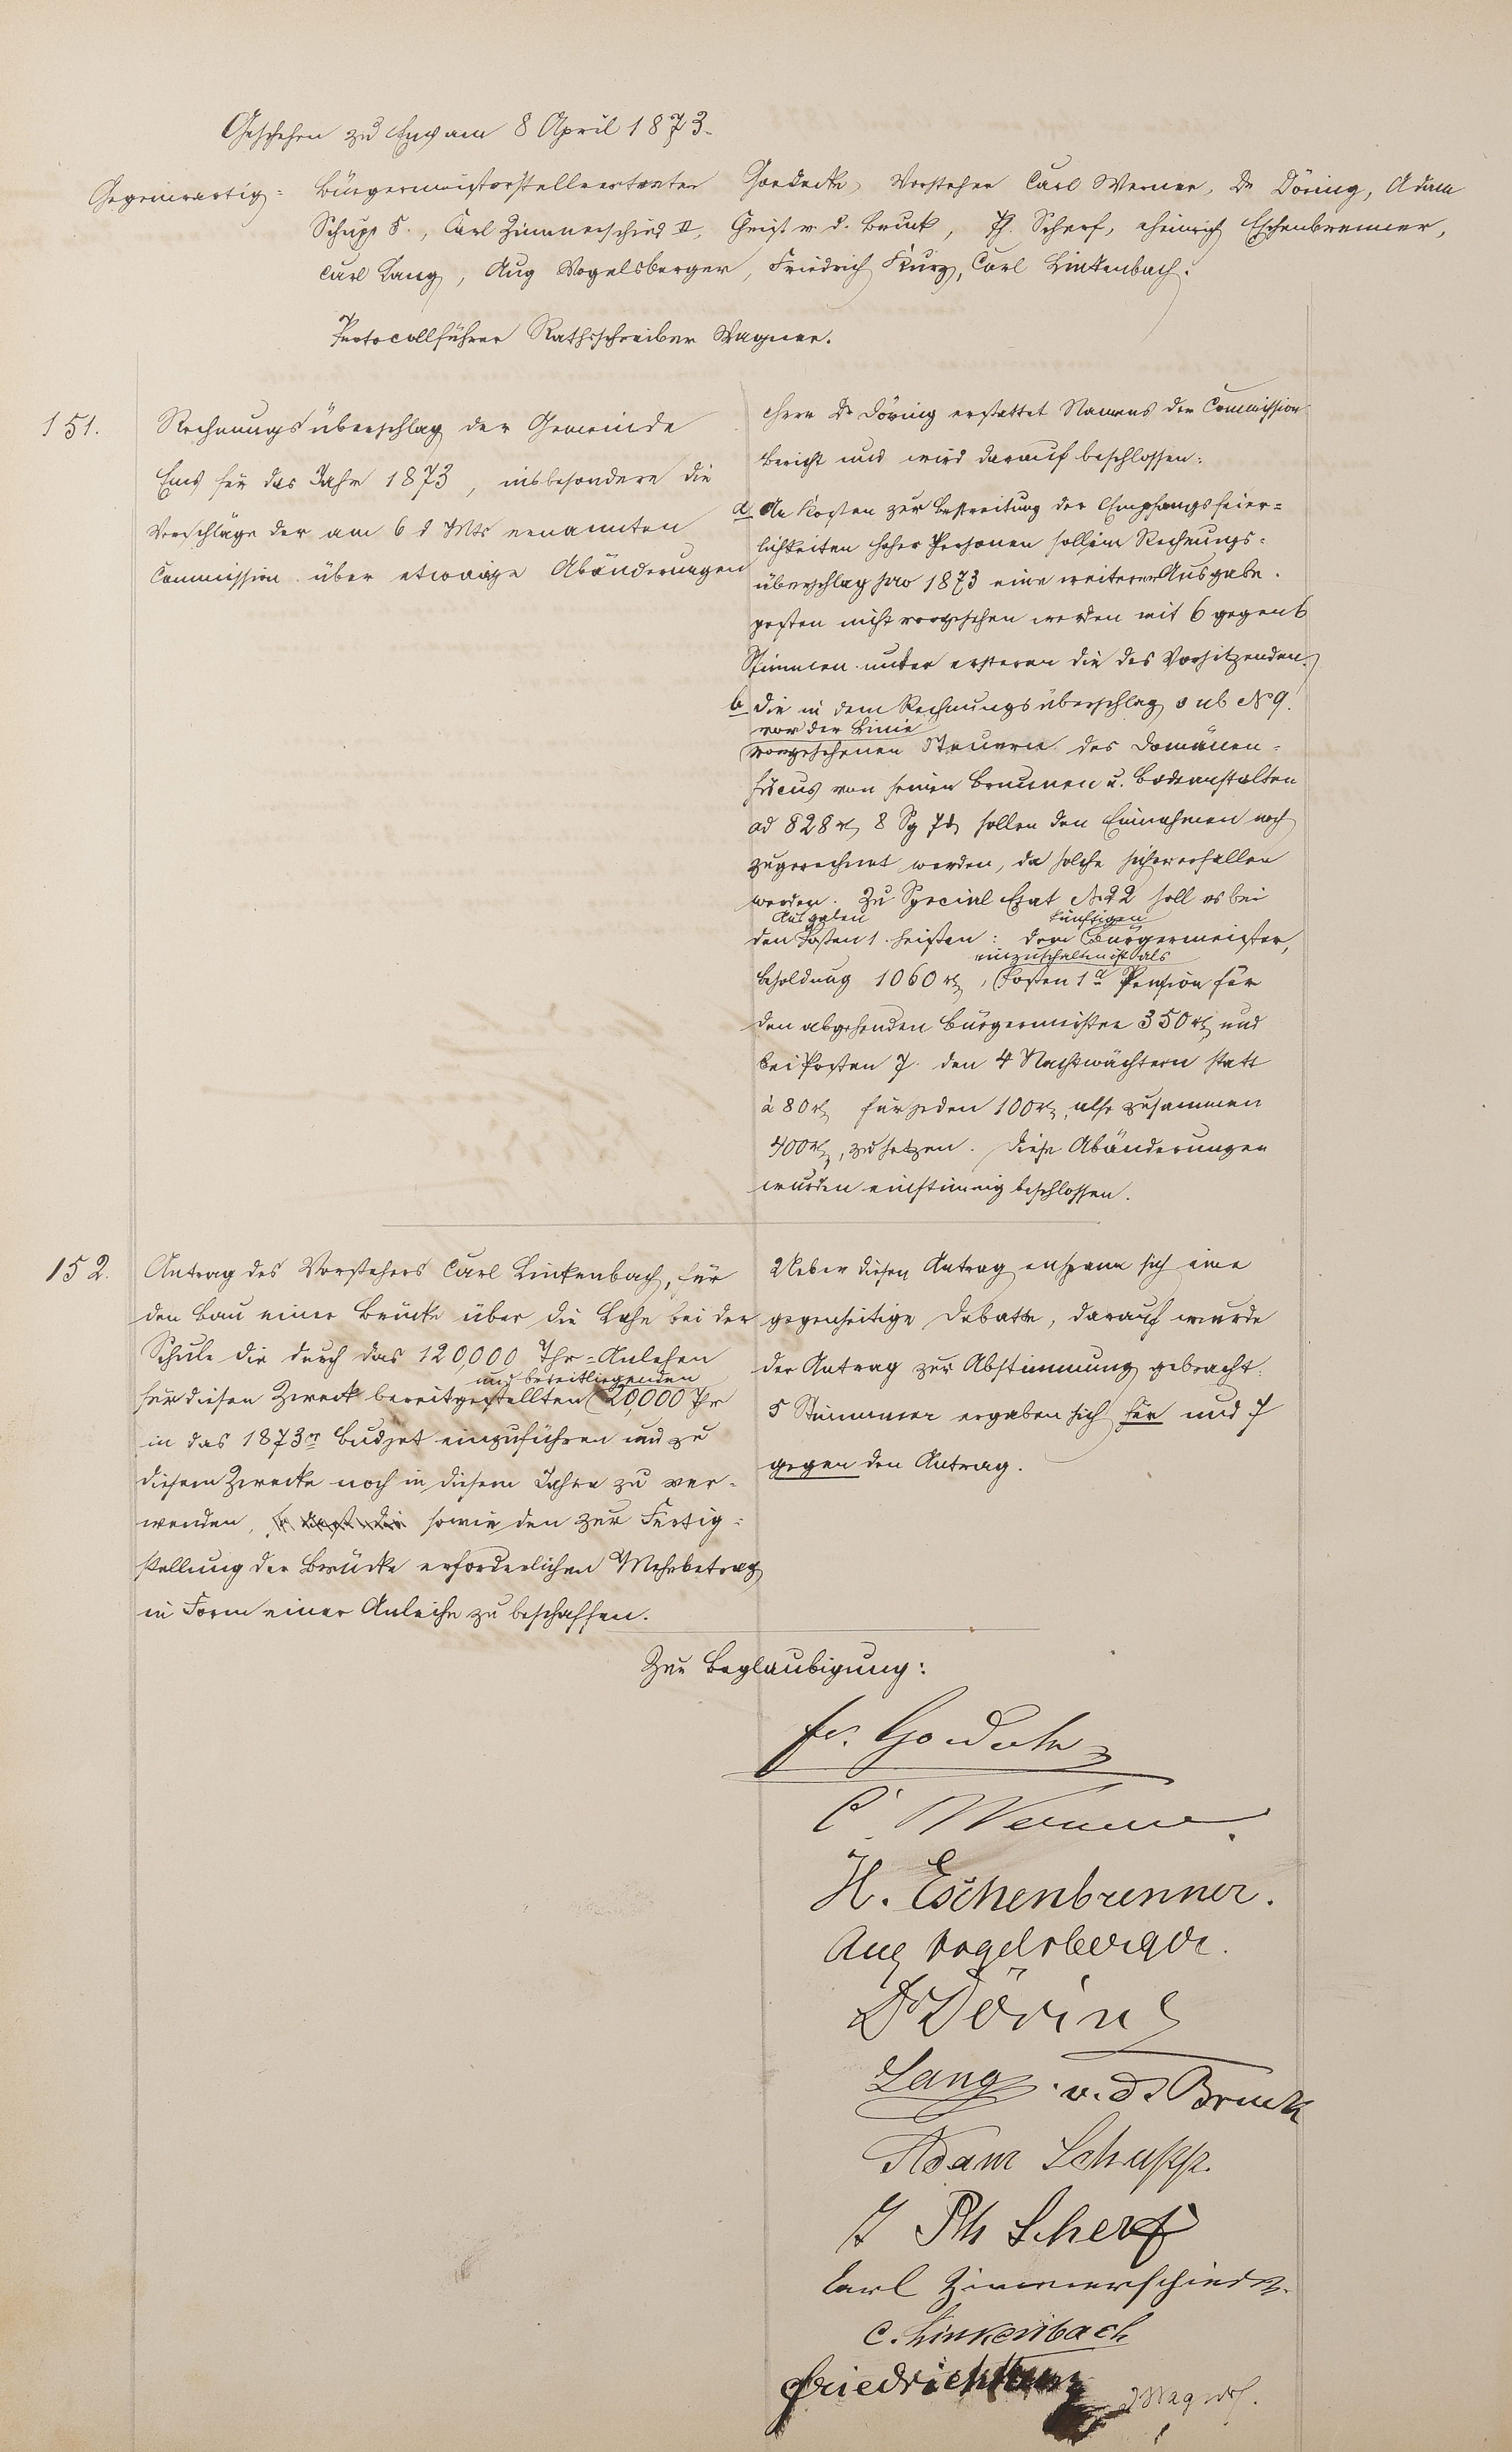 Geschehen zu Ems am 8 April 1873.
Gegenwärtig: Bürgermeisterstellvertreter Goedecke, Vorsteher Carl Werner, Dr Döring, Adam
Schupp 5., Carl Zimmerschied II, Geist v. d. Bruck, Ph. Scherf, Heinrich Eschenbrenner,
Carl Lang, Aug Vogelsberger, Friedrich Kurz, Carl Linkenbach.
Protocollführer Rathsschreiber Wagner.
151.
Rechnungsüberschlag der Gemeinde
Ems für das Jahr 1873, insbesondere die
Vorschläge der am 6 d Mts ernannten
Commission über etwaige Abänderungen
Herr Dr Döring erstattet Namens der Commission
Bericht und wird darauf beschlossen:
a Die Kosten zur Bestreitung der Empfangsfeier=
lichkeiten hoher Personen soll im Rechnungs=
überschlag pro 1873 eine weiterer Ausgabe.
posten nicht vorgesehen werden mit 6 gegen 6
Stimmen unter ersteren die des Vorsitzenden.
b die in dem Rechnungsüberschlag sub No 9.
vor der Linie
vorgesehenen Steuern des Domänen=
fiscus von seinen Brunnen u. Badeanstalten
ad 828 rt 8 Sg 7 d sollen den Einnahmen noch
zugerechnet werden, da solche sicher erfallen
werden. Zu Special Etat No 22 soll es bei
Ausgaben künftigen
den Posten 1. heißen: dem Bürgermeister,
einzuschalten ist als
besoldung 1060 rt, Posten 1a Pension für
den abgehenden Bürgermeister 350 rt und
bei Posten 7. den 4 Nachtwächtern statt
à 80 rt für jeden 100 rt, also zusammen
400 rt, zu setzen. Diese Abänderungen
wurden einstimmig beschlossen.
152.
Antrag des Vorstehers Carl Linkenbach, für
den Bau einer Brücke über die Lahn bei der
Schule die durch das 120,000 Thr=Anlehen
und bereitliegenden
für diesen Zweck bereitgestellten 20,000 Thr
in das 1873er Budjet einzuführen und zu
diesem Zwecke noch in diesem Jahre zu ver=
wenden, sowie den zur Fertig=
stellung der Brücke erforderlichen Mehrbetrag
in Form einer Anleihe zu beschaffen.
Ueber diesen Antrag entspann sich eine
gegenseitige Debatte, darauf wurde
der Antrag zur Abstimmung gebracht.
5 Stimmen ergaben sich für und 7
gegen den Antrag.
Zur Beglaubigung:
Fr. Goedecke
C. Werner.
H. Eschenbrenner.
Aug Vogelsberger.
Dr Döring
Lang. v. d. Bruck
Adam Schupp.
Ph Scherf
Carl Zimmerschied II.
C. Linkenbach
Friedrich Kurz
Wagner.